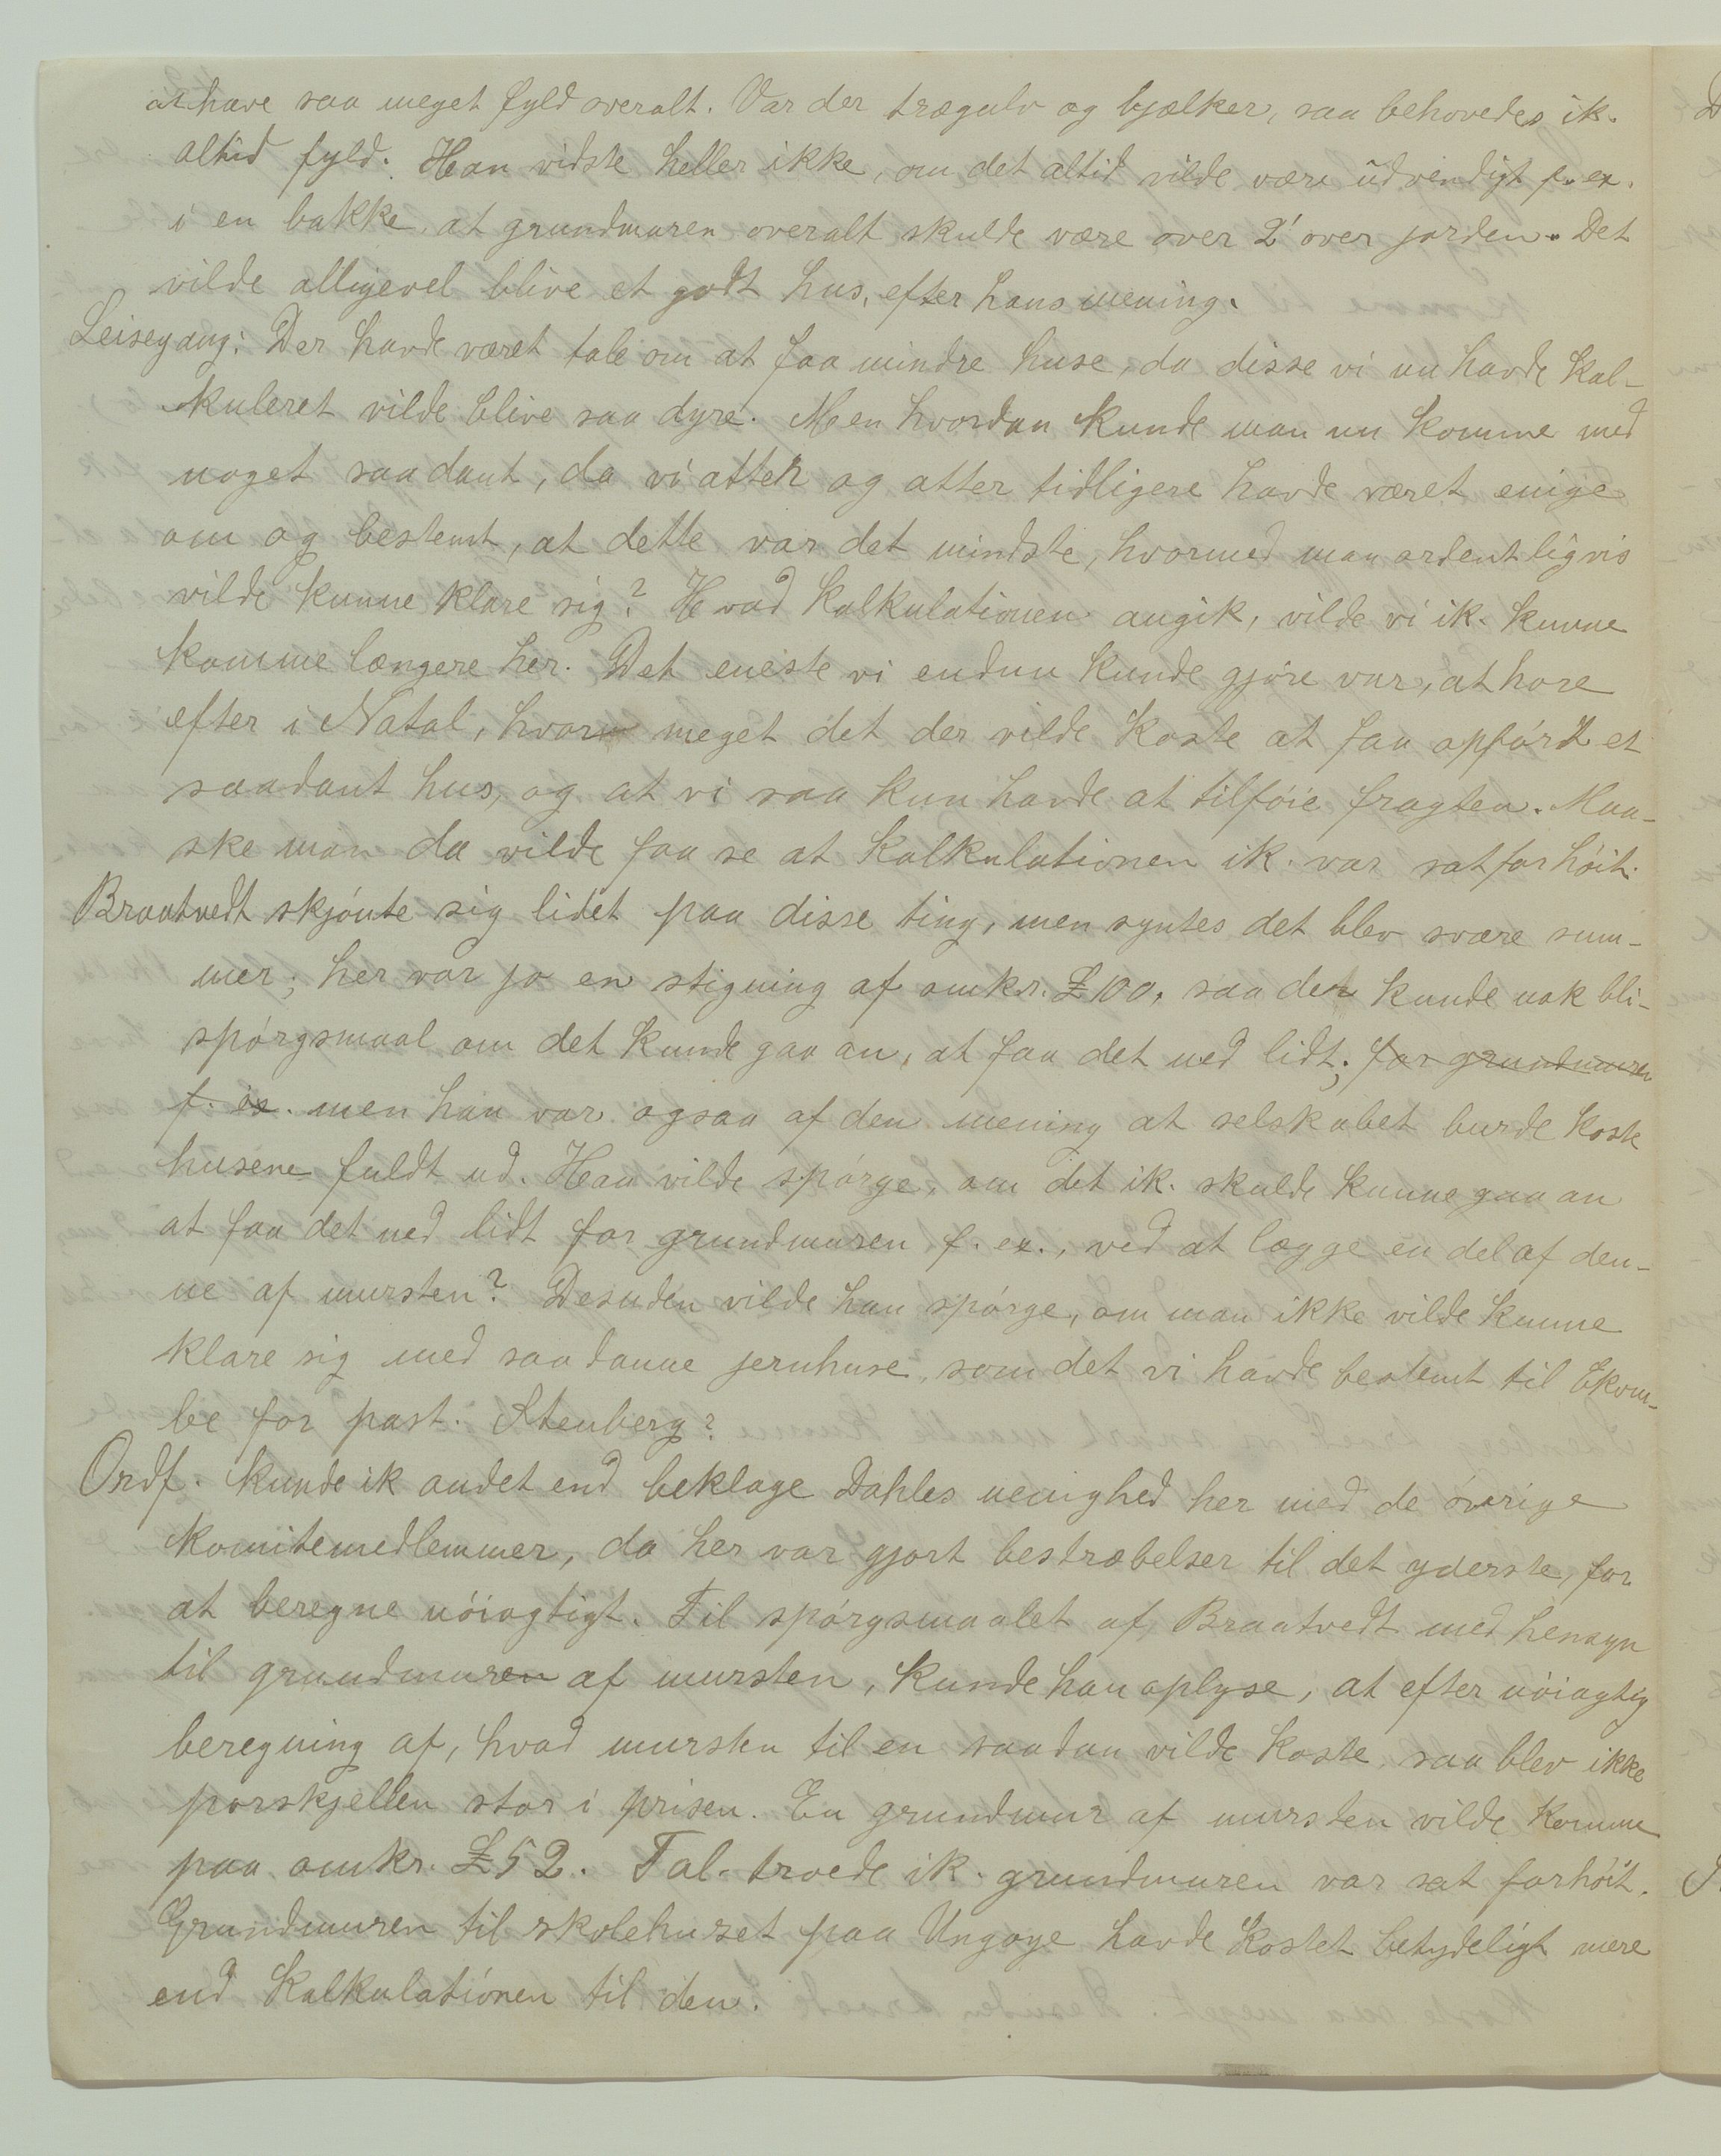 at have saa meget fyld overalt. Var der trægulv og bjælker, saa behovedes ik.
altid fyld. Han vidste heller ikke, om det altid vilde være udvendigt f. ex.
i en bakke, at grundmuren overalt skulde være over 2' over jorden. Det
vilde alligevel blive et godt hus, efter hans mening.
Leisegang: Der havde været tale om at faa mindre huse, da disse vi nu havde kal-
kuleret vilde blive saa dyre. Men hvordan kunde man nu komme med
noget saadant, da vi atter og atter tidligere havde været enige
om og bestemt, at dette var det mindste, hvormed man ordentligvis
vilde kunne klare sig? Hvad kalkulationen angik, vilde vi ik. kunne
komme længere her. Det eneste vi endnu kunde gjöre var, at höre
efter i Natal, hvor meget det der vilde koste at faa opfört et
saadant hus, og at vi saa kun havde at tilföie fragten. Maa-
ske man da vilde faa se at kalkulationen ik. var sat for höit.
Braatvedt skjönte sig lidet paa disse ting, men syntes det blev svære sum-
mer; her var jo en stigning af omkr. £100, saa der kunde nok bli-
spörgsmaal om det kunde gaa an, at faa det ned lidt; for grundmuren
f. ex. men han var ogsaa af den mening at selskabet burde koste
husene fuldt ud. Han vilde spörge, om det ik. skulde kunne gaa an
at faa det ned lidt for grundmuren f. ex., ved at lægge en del af den-
ne af mursten? Desuden vilde han spörge, om man ikke vilde kunne
klare sig med saadanne jernhuse, som det vi havde bestemt til Ekom-
be for past. Stenberg?
Ordf. kunde ik andet end beklage Dahles uenighed her med de övrige
komitemedlemmer, da her var gjort bestræbelser til det yderste, for
at beregne nöiagtigt. Til spörgsmaalet af Braatvedt med hensyn
til grundmuren af mursten, kunde han oplyse, at efter nöiagtig
beregning af, hvad mursten til en saadan vilde koste, saa blev ikke
forskjellen stor i prisen. En grundmur af mursten vilde komme
paa omkr. £52. Tal. troede ik. grundmuren var sat for höit.
Grundmuren til skolehuset paa Ungoye havde kostet betydeligt mere
end kalkulationen til den.